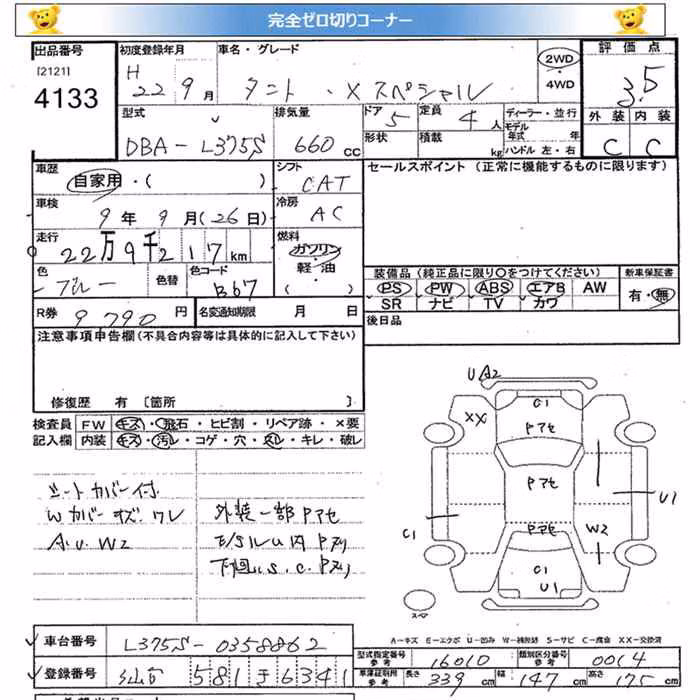 完全ゼロ切りコーナー
出品番号 初度登録年月 車名・グレード 2WD・4WD 評価点
[2121]
4133
H22 9月 タント・Xスペシャル 3.5
型式 排気量 ドア 定員 ディーラー・並行 外装 内装
DBA-L375S 660cc 5 4人 モデル年式 年 C C
形状 積載 kg ハンドル 左・右
車歴 シフト セールスポイント (正常に機能するものに限ります)
自家用・( ) CAT
車検 冷房
9年9月(26日) AC
走行 燃料
22万9千217km ガソリン・軽油( )
色 色替 色コード 装備品 (純正品に限り○をつけてください) 新車保証書
ブルー B67 PS PW ABS エアB AW 有・無
SR ナビ TV カワ
R券 9790円 名変通知期限 月 日 後日品
注意事項申告欄 (不具合内容等は具体的に記入して下さい)
修復歴 有 〔箇所 〕
検査員 FW キズ・飛石・ヒビ割・リペア跡・×要
記入欄 内装 キズ・汚レ・コゲ・穴・スレ・キレ・破レ
シートカバー付
Wカバーキズ、ワレ 外装一部Pアセ
A.U.W2
下回り、S.C.Pヌリ
UA2
C1
XX Pアセ
Pアセ
U1
C1 Pアセ W2
C
U1
スペア
A-キズ E-エクボ U-凹み W-補修跡 S-サビ C-腐食 XX-交換済
車台番号 L375S-0358862
型式指定番号 参考 16010 類別区分番号 参考 0014
登録番号 581 6341
車庫証明用 参考 長さ 339cm 幅 147cm 高さ 175cm